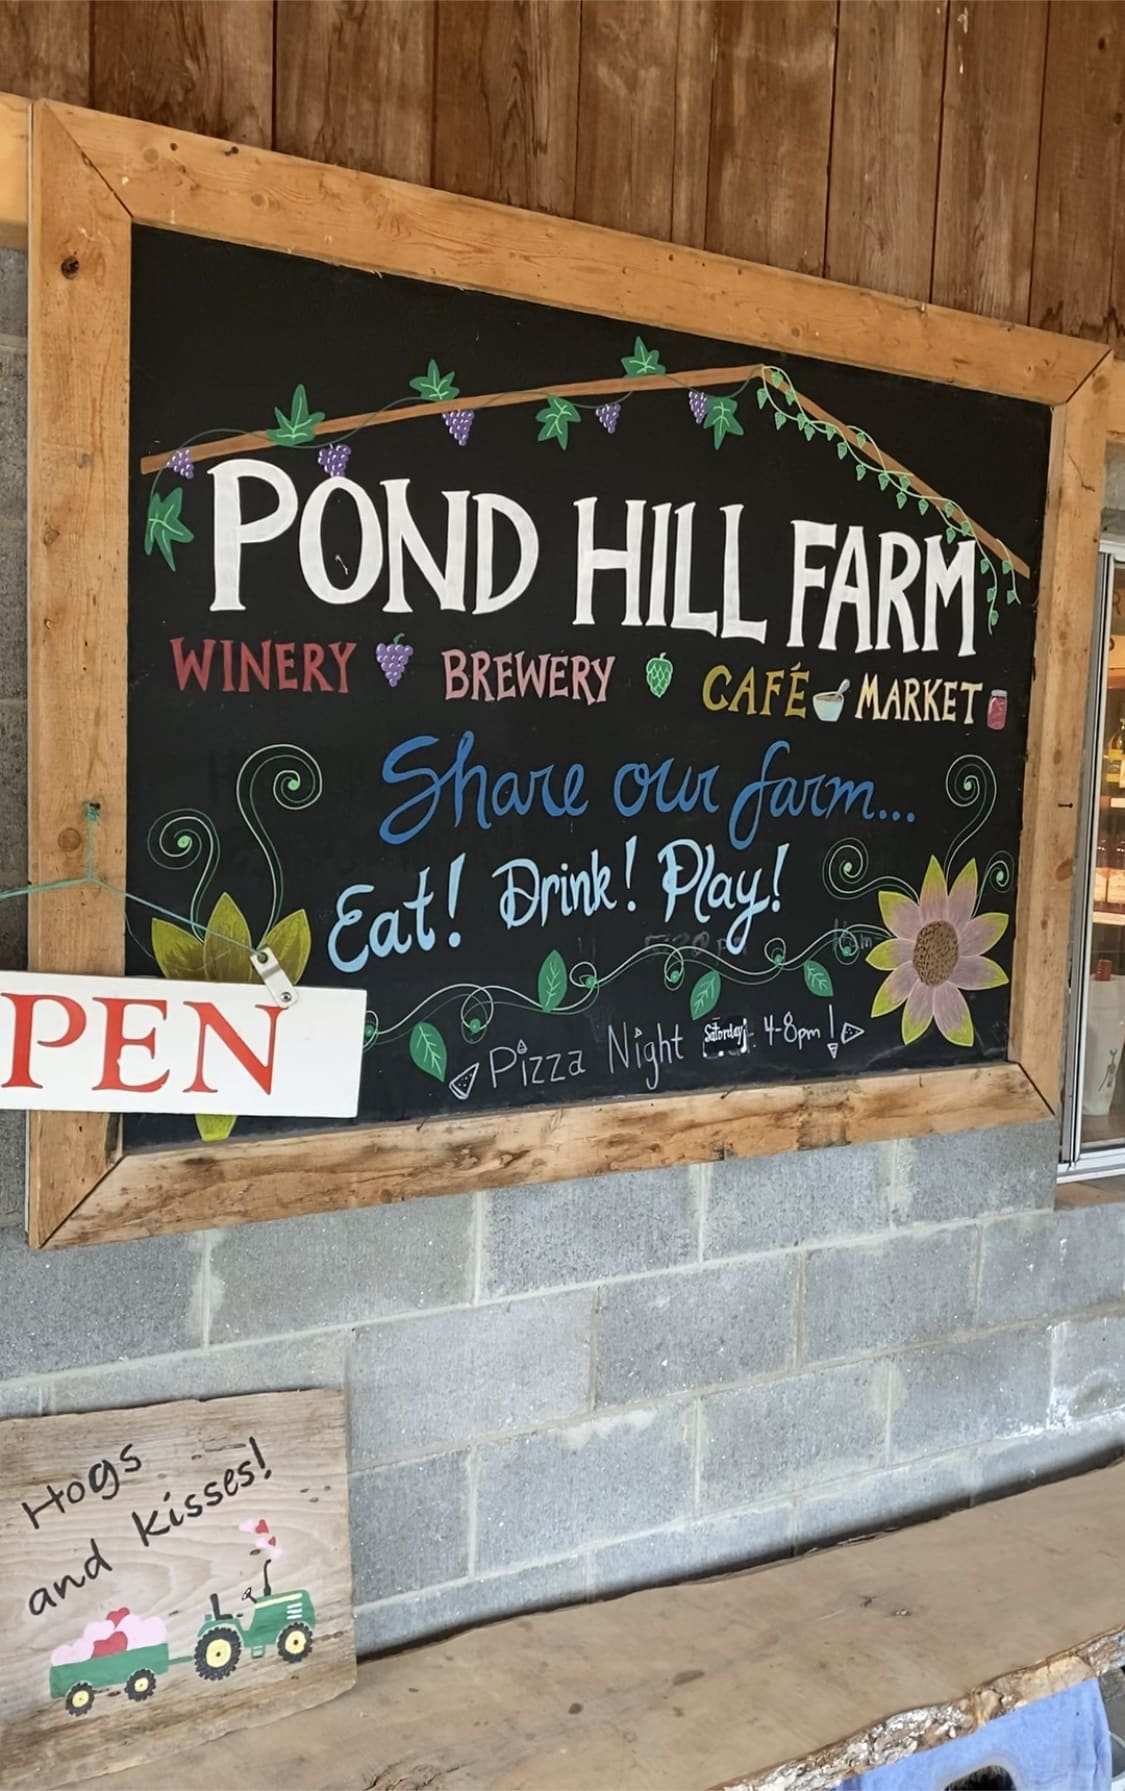 POND HILL FARM
WINERY BREWERY CAFÉ MARKET
Share our farm...
Eat! Drink! Play!
Pizza Night Saturday 4-8pm!
PEN
Hogs
and kisses!